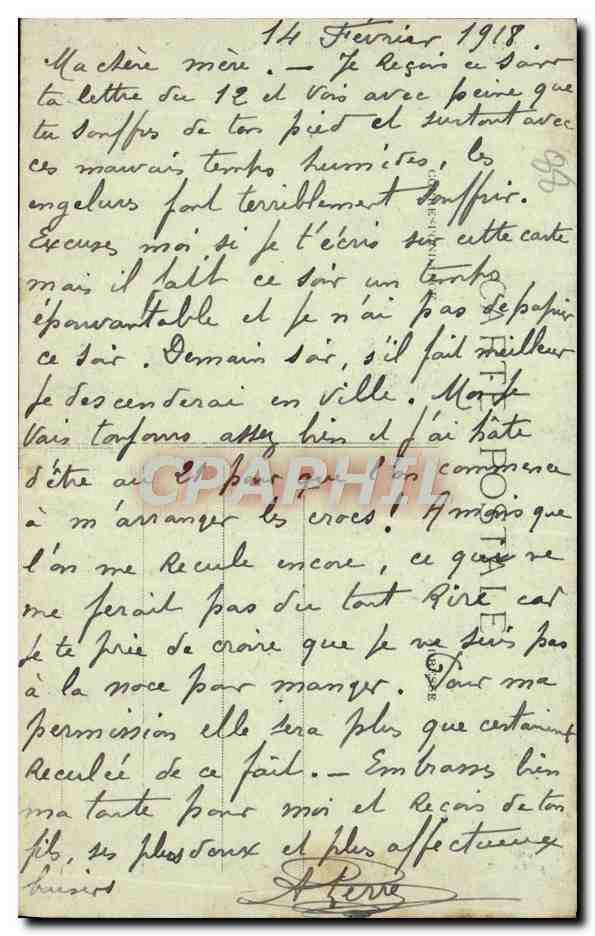 14 Février 1918
Ma chère mère. — Je Reçois ce soir
ta lettre du 12 et vois avec peine que
tu souffres de ton pied et surtout avec
ces mauvais temps humides, les
engelures font terriblement souffrir.
Excuses moi si je t'écris sur cette carte
mais il fait ce soir un temps
épouvantable et je n'ai pas de papier
ce soir. Demain soir, s'il fait meilleur
je descenderai en ville. Moi je
vais toujours assez bien et j'ai hâte
d'être au 21 pour que l'on commence
à m'arranger les crocs! A moins que
l'on me Recule encore, ce qui ne
me ferait pas du tout Rire car
je te prie de croire que je ne suis pas
à la noce pour manger. Pour ma
permission elle sera plus que certainemt
Reculée de ce fait. — Embrasses bien
ma tante pour moi et Reçois de ton
fils, ses plus doux et plus affectueux
baisers
CARTE POSTALE
CORRESPONDANCE
ADRESSE
98
CPAPHIL